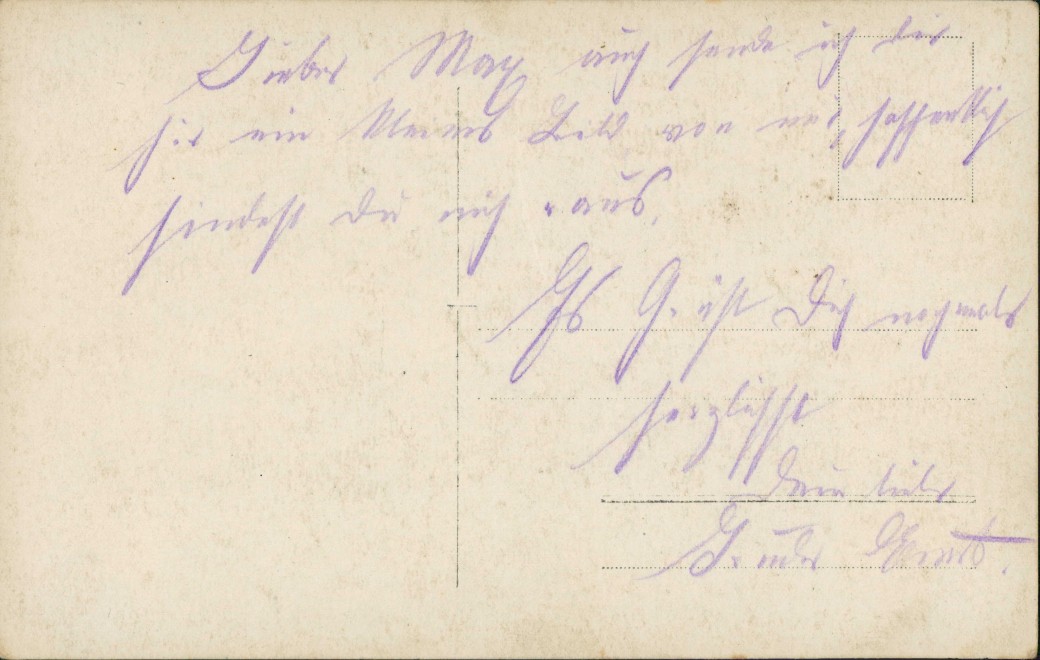 Lieber Max auch sende ich dir
hir ein kleines Bild von mir, hoffentlich
findest du mich raus.
Es Grüst Dich nochmals
herzlichst
Dein lieber
Bruder Ernst.